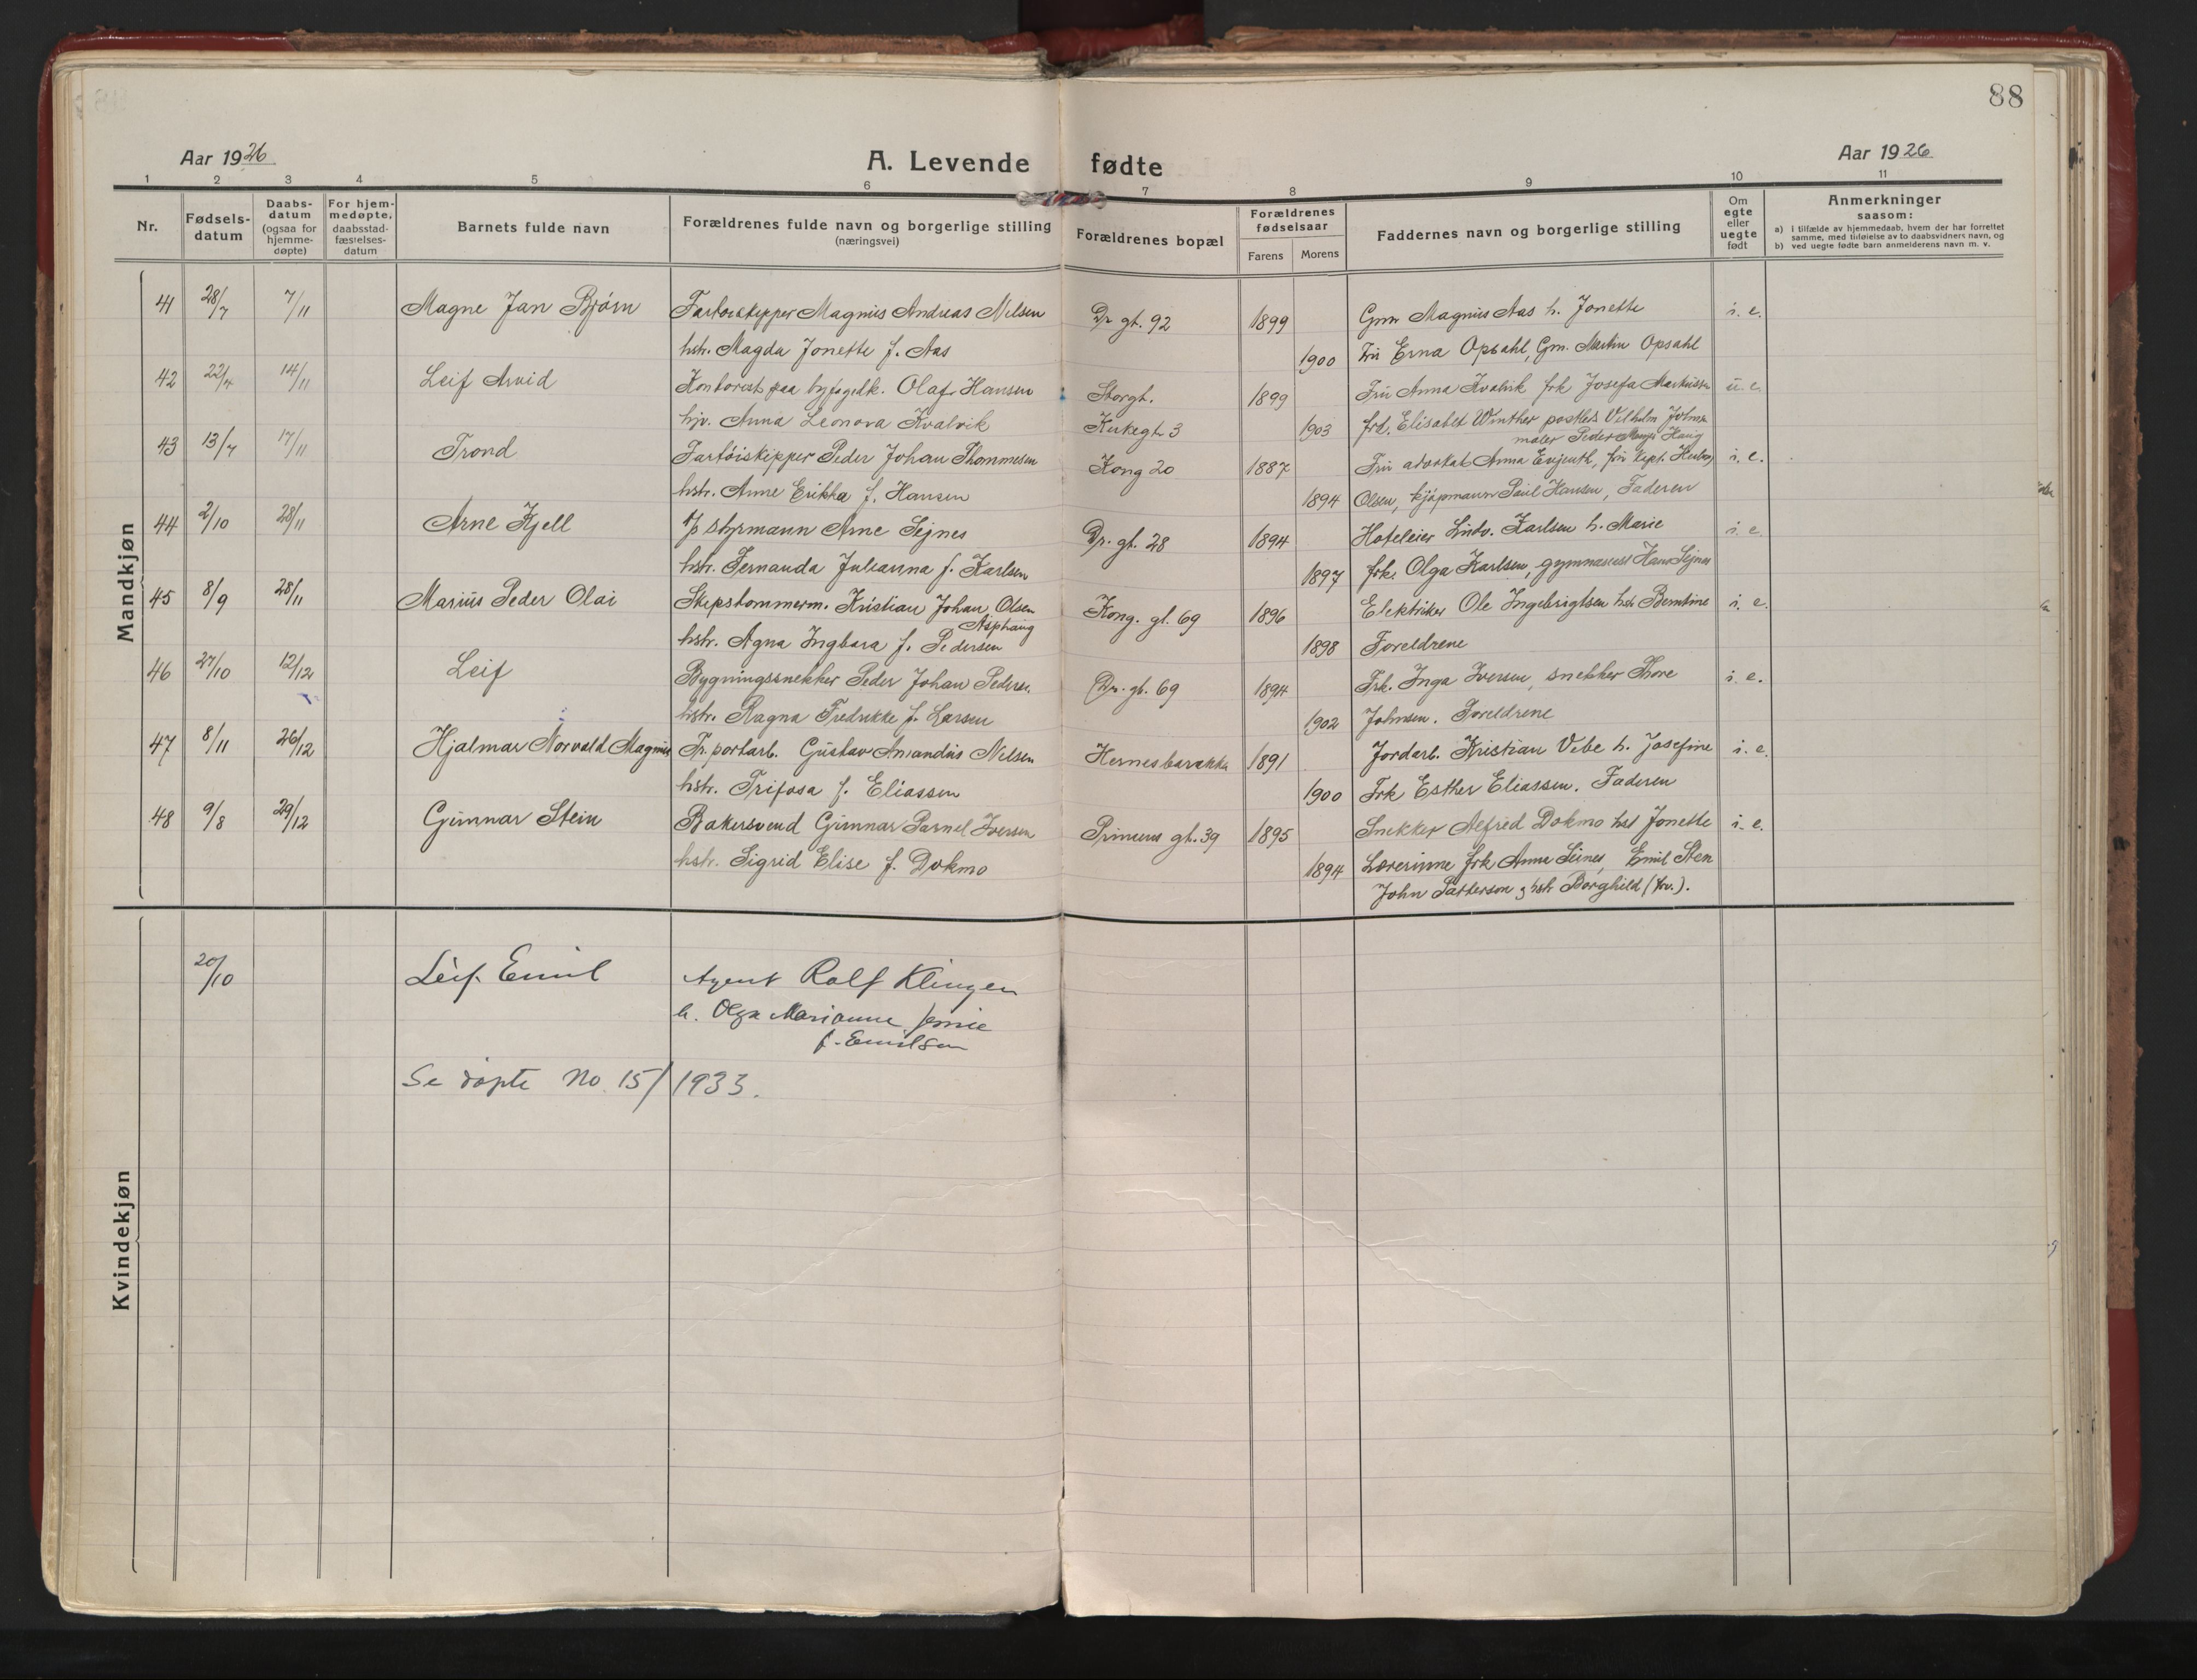 88
Aar 1926
A. Levende fødte
Aar 1926
1 2 3 4 5 6 7 8 9 10 11
Nr.
Fødsels-
datum
Daabs-
datum
(ogsaa for
hjemme-
døpte)
For hjem-
medøpte,
daabsstad-
fæstelses-
datum
Barnets fulde navn
Forældrenes fulde navn og borgerlige stilling
(næringsvei)
Forældrenes bopæl
Forældrenes
fødselsaar
Farens Morens
Faddernes navn og borgerlige stilling
Om
egte
eller
uegte
født
Anmerkninger
saasom:
a) I tilfælde av hjemmedaab, hvem der har forrettet
samme, med tilføielse av to daabsvidners navn, og
b) ved uegte fødte barn anmelderens navn m. v.
Mandkjøn
41 28/7 7/11 Magne Jan Bjørn Fartøiskipper Magnus Andreas Nilsen Dr. gt. 92 1899 Grm Magnus Aas h. Jonette i. e.
hstr. Magda Jonette f. Aas 1900 Fru Erna Opsahl, Gm. Martin Opsahl
42 22/4 14/11 Leif Arvid Kontorist paa byfogedk. Olaf Hansen Storgt. 1899 Fru Anna Kvalvik frk Josefa Markussen u. e.
hjv. Anna Leonora Kvalvik Kirkegt 3 1903 frk. Elisabet Winther postbud Vilhelm
maler Peder Haug
43 13/7 17/11 Trond Fartøiskipper Peder Johan Thommesen Kong 20 1887 Fru advokat Anna Evjenth, fru kapt. i. e.
hstr. Anne Erikka f. Hansen 1894 Olsen, kjøpmann Paul Hansen, Faderen
44 2/10 28/11 Arne Kjell styrmann Arne Sejnes Dr. gt. 28 1894 Hoteleier Ludv. Karlsen h. Marie i. e
hstr. Fernanda Julianna f. Karlsen 1897 frk. Olga Karlsen, gymnasiast Hans Sejnes
45 8/9 28/11 Marius Peder Olai Skipstømmerm. Kristian Johan Olsen Kong. gt. 69 1896 Elektriker Ole Ingebrigtsen hstr Berntine i. e.
Asphaug
hstr. Agna Ingbara f. Pedersen 1898 Foreldrene
46 27/10 12/12 Leif Bygningssnekker Peder Johan Pedersen Dr. gt. 69 1894 Frk. Inga Iversen, snekker Thore i. e.
hstr. Ragna Fredrikke f. Larsen 1902 Johnsen. Foreldrene
47 8/11 26/12 Hjalmar Norvald Magnus Tr. portarb. Gustav Amandus Nilsen Hernesbarakke 1891 Jordarb. Kristian Vebe h. Josefine i. e.
hstr. Trifosa f. Eliassen 1900 Frk Esther Eliassen. Faderen
48 9/8 29/12 Gunnar Stein Bakersvend Gunnar Parnel Iversen Prinsens gt. 39 1895 Snekker Alfred Dokmo hst Jonette i. e.
hstr. Sigrid Elise f. Dokmo 1894 Lærerinne frk Anna Seines, Emil Sten
John Patterson og hstr Borghild (frv.).
Kvindekjøn
20/10 Leif Emil Agent Rolf Klingen
h. Olga Marianne Jensie
f. Emilsen
Se døpte No 15/1933.